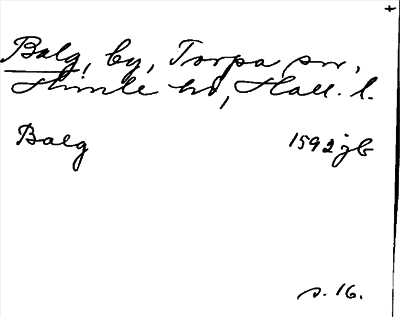 Balg, by, Torpa sn,
Himle hd, Hall. l.
Balg 1592 jb
s. 16.